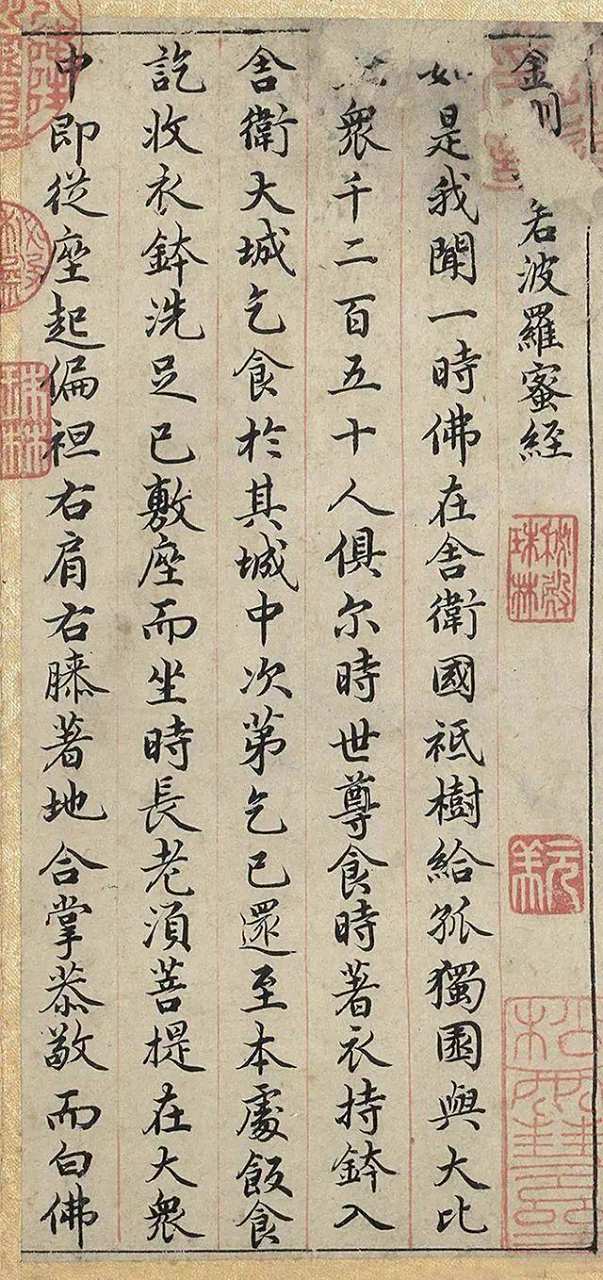 金若波羅蜜經
如是我聞一時佛在舍衛國祇樹給孤獨園與大比
眾千二百五十人俱尔時世尊食時著衣持鉢入
舍衛大城乞食於其城中次第乞已還至本處飯食
訖收衣鉢洗足已敷座而坐時長老須菩提在大眾
中即從座起偏袒右肩右膝著地合掌恭敬而白佛
秘殿珠林